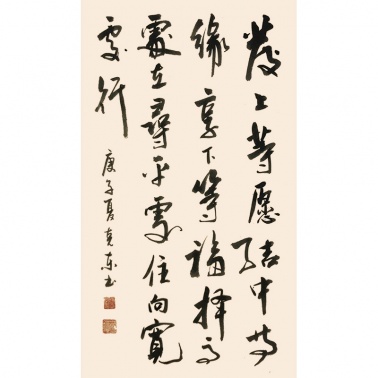 發上等愿结中等
缘享下等福择高
處立尋平處住向寬
處行
庚子夏克东书